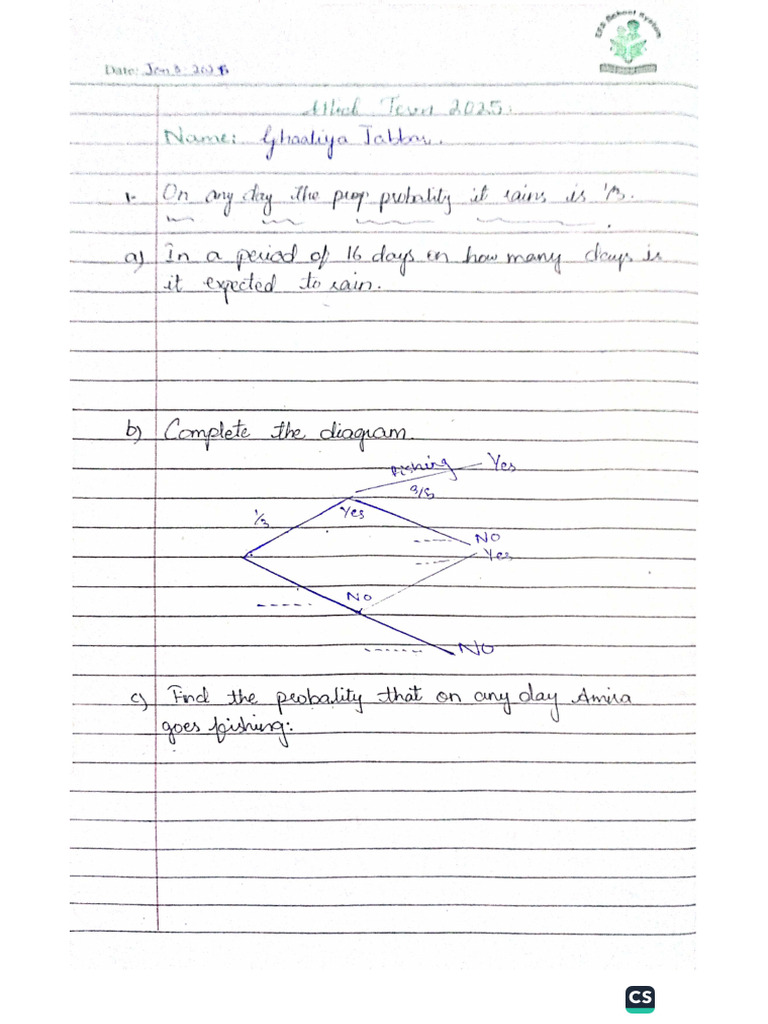 EFS School System
Date: Jan 8. 2025
Term 2025.
Name: Ghaaliya Jabbar.
1. On any day the prop probality it rains is 1/3.
a) In a period of 16 days on how many days is
it expected to rain.
b) Complete the diagram.
Fishing Yes
9/5
1/3 Yes
NO
Yes
NO
NO
c) Find the probality that on any day Amira
goes fishing:
CS